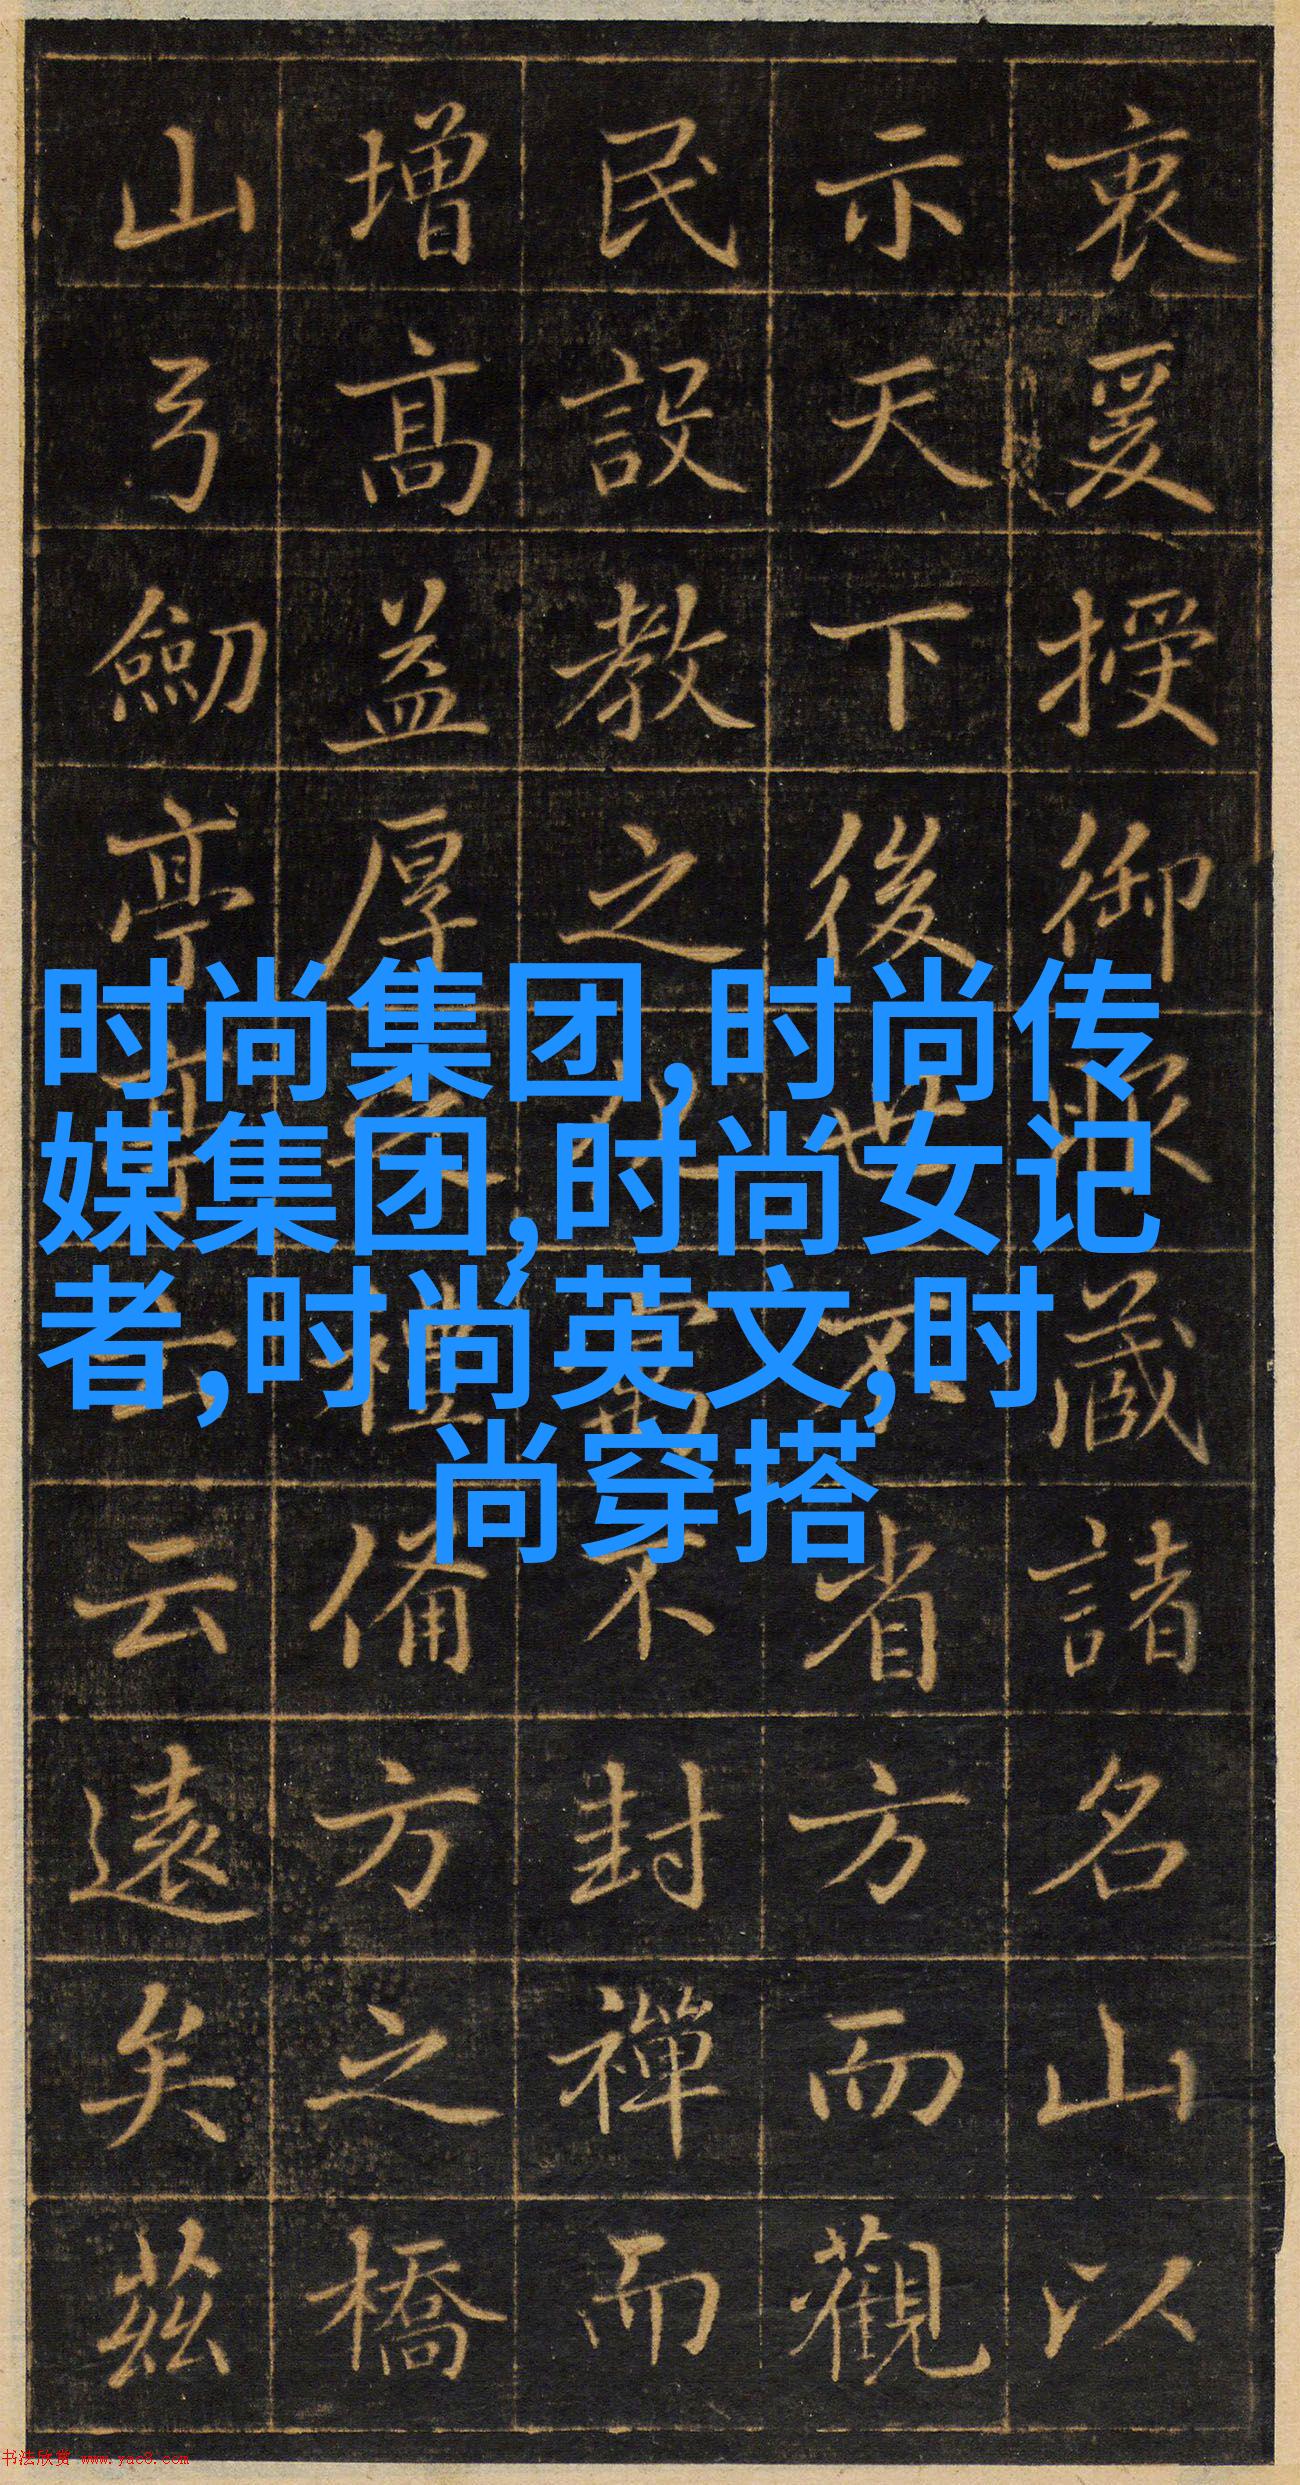 衷爰授御藏諸名山以
示天下後世不省方而觀
民設教之不封禪而
增高益厚禮備方之橋
山弓劒亭亭云云遠矣茲
时尚集团,时尚传
媒集团,时尚女记
者,时尚英文,时
尚穿搭
书法欣赏 www.yac8.com